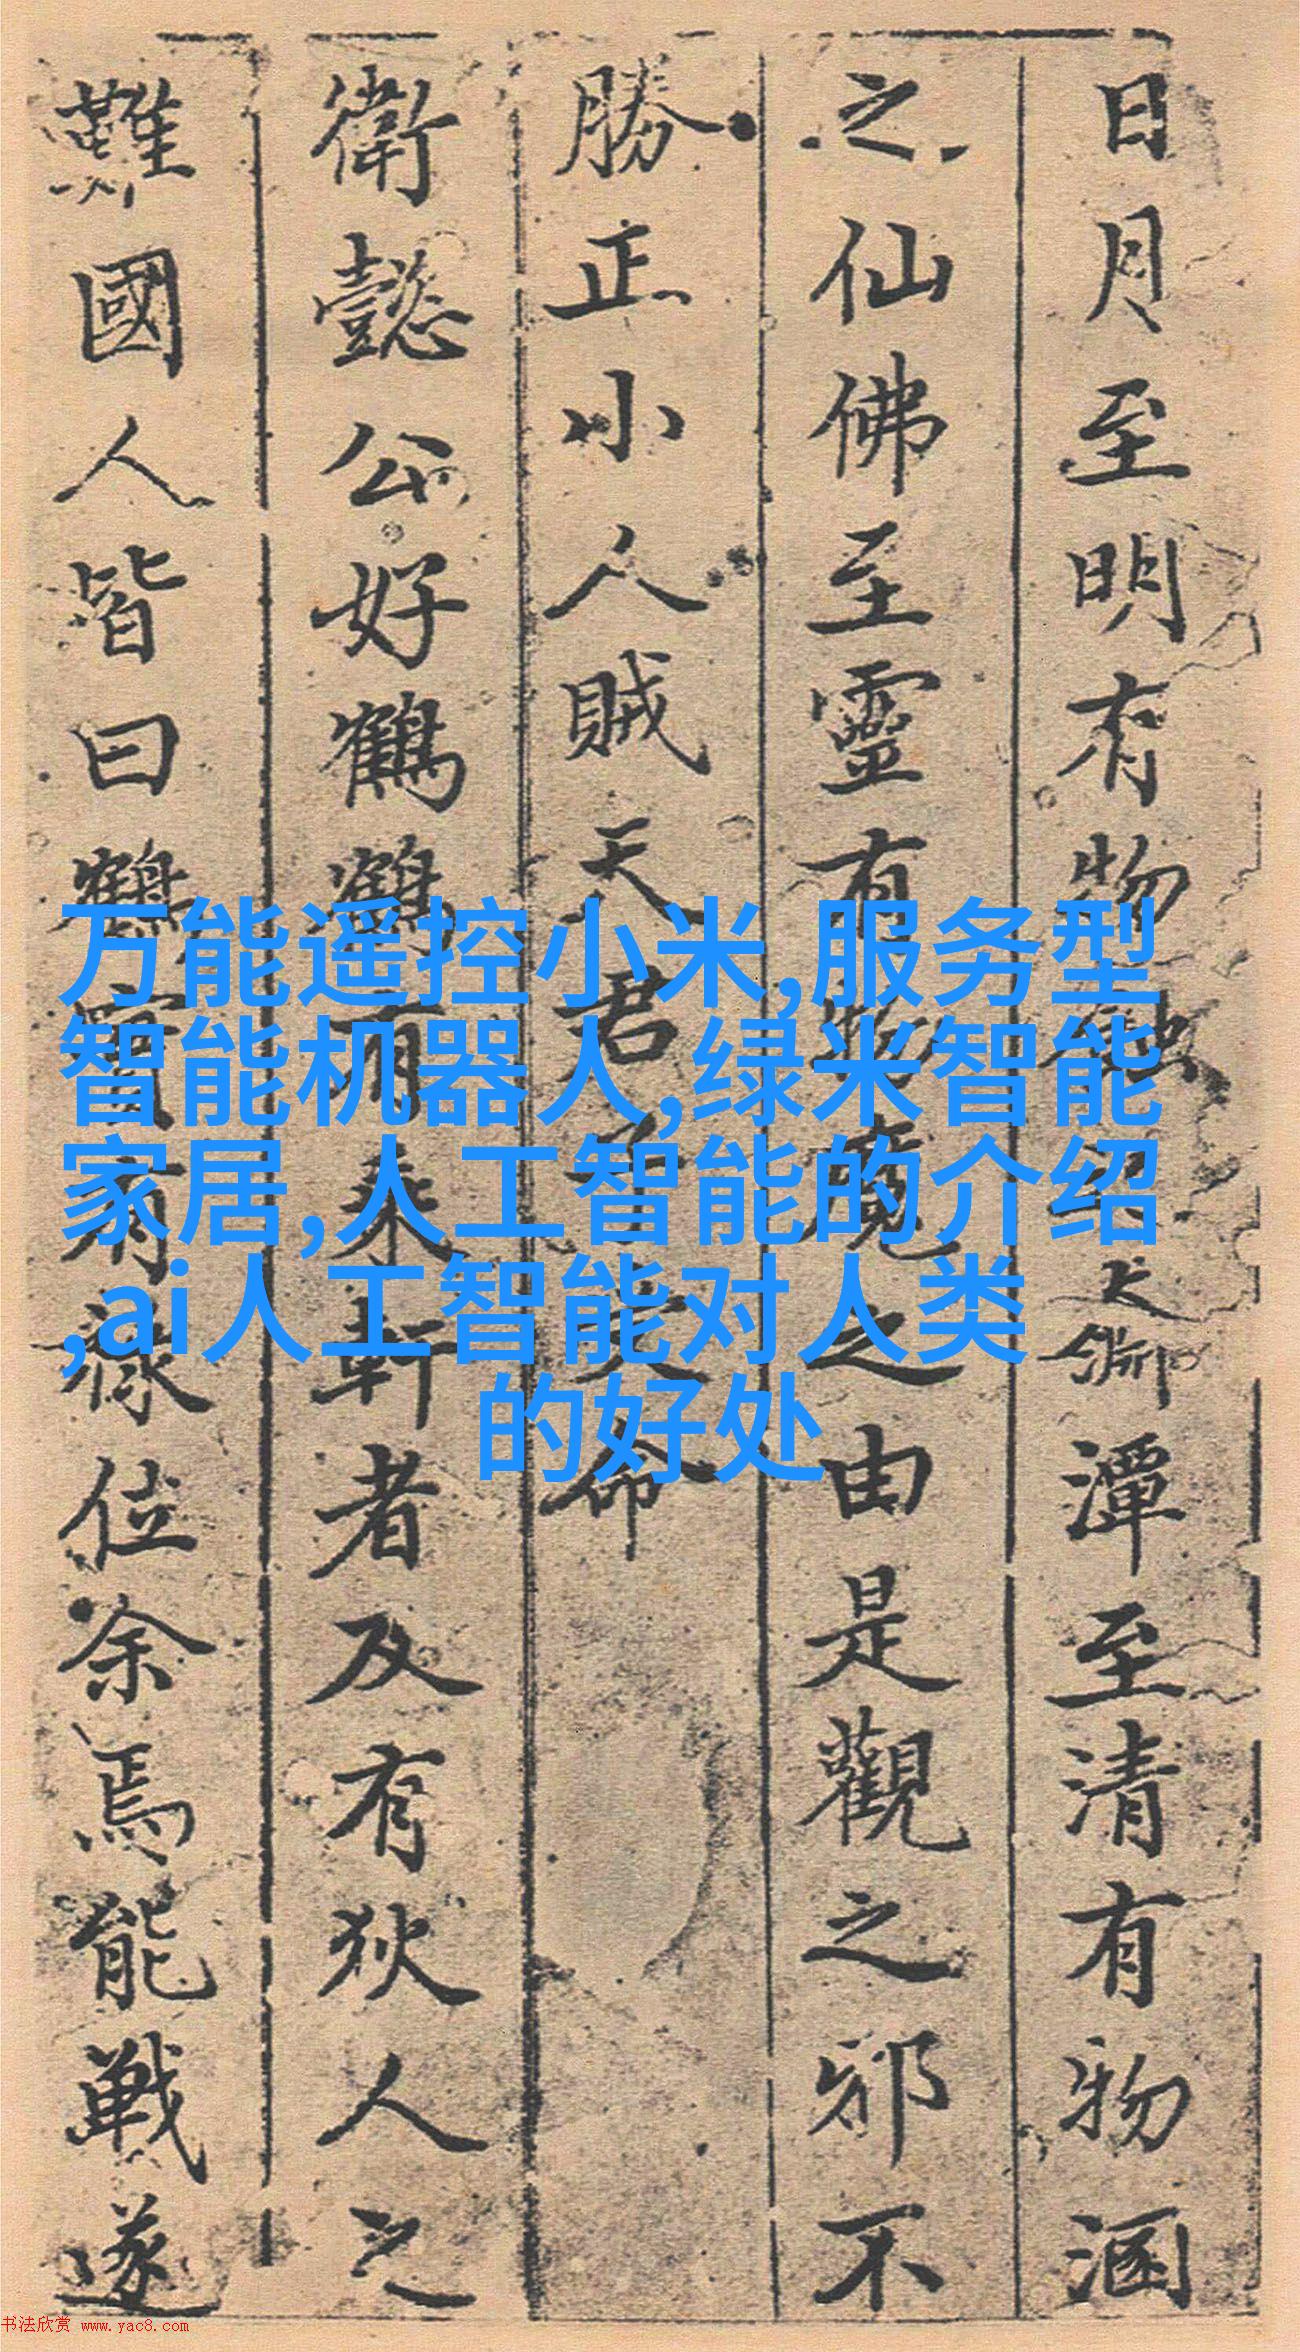 日月至明有物蝕之潭至清有物涵
之仙佛至靈有物魔之由是觀之邪不
勝正小人賊天君子天命
衛懿公好鶴鶴有乘軒者及有狄人之
難國人皆曰鶴實有祿位余焉能戰遂
万能遥控小米,服务型
智能机器人,绿米智能
家居,人工智能的介绍
,ai人工智能对人类
的好处
书法欣赏 www.yac8.com